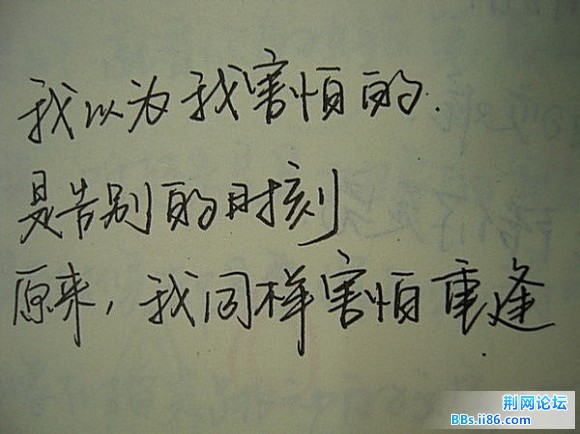 我以为我害怕的.
是告别的时刻
原来,我同样害怕重逢
荆网论坛
BBs.ii86.com